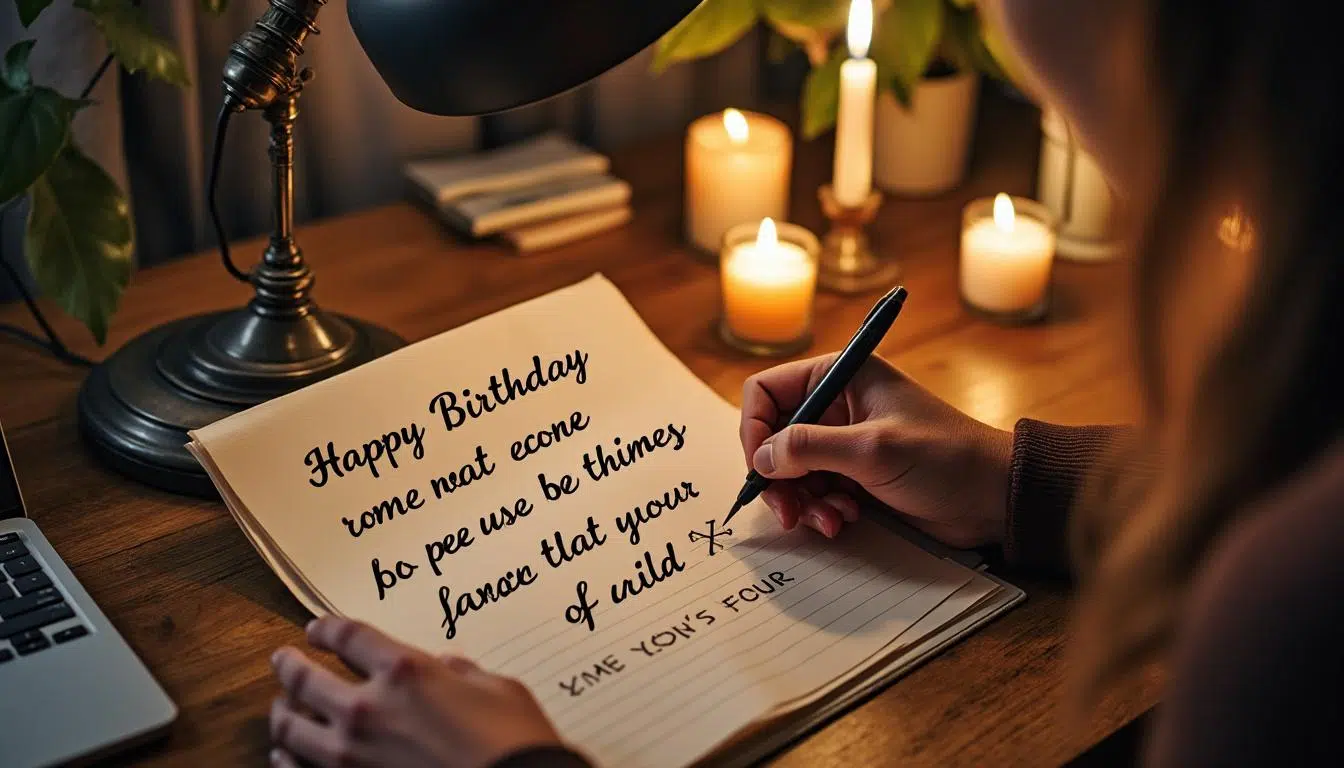 Happy Birthday
rome neat econe
bo pee use be thimes
that your
of urild
XME YON'S FOUR